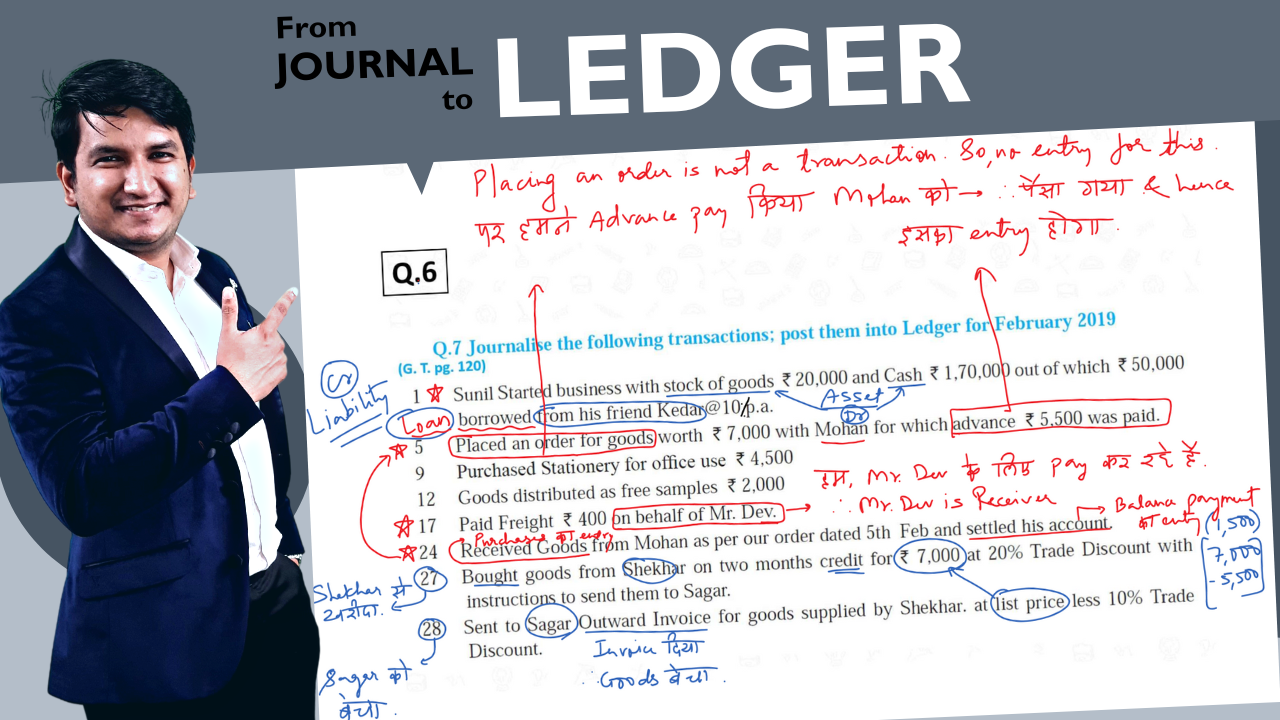 From
JOURNAL
to
LEDGER
Placing an order is not a transaction. So, no entry for this.
पर हमने Advance pay किया Mohan को → ∴ पैसा गया & hence
इसका entry होगा.
Q.6
Q.7 Journalise the following transactions; post them into Ledger for February 2019
(G. T. pg. 120)
Cr
Liability
1 Sunil Started business with stock of goods ₹ 20,000 and Cash ₹ 1,70,000 out of which ₹ 50,000
Asset
Dr
Loan borrowed from his friend Kedar@10/p.a.
5 Placed an order for goods worth ₹ 7,000 with Mohan for which advance ₹ 5,500 was paid.
9 Purchased Stationery for office use ₹ 4,500
12 Goods distributed as free samples ₹ 2,000
हम, Mr. Dev के लिए pay कर रहे हैं.
∴ Mr. Dev is Receiver
17 Paid Freight ₹ 400 on behalf of Mr. Dev. →
Balance payment
का entry (1,500)
Purchases का entry
24 Received Goods from Mohan as per our order dated 5th Feb and settled his account.
7,000
- 5,500
27 Bought goods from Shekhar on two months credit for ₹ 7,000 at 20% Trade Discount with
instructions to send them to Sagar.
Shekhar से
खरीदा.
28 Sent to Sagar Outward Invoice for goods supplied by Shekhar. at list price less 10% Trade
Discount.
Invoice दिया
∴ Goods बेचा.
Sagar को
बेचा.